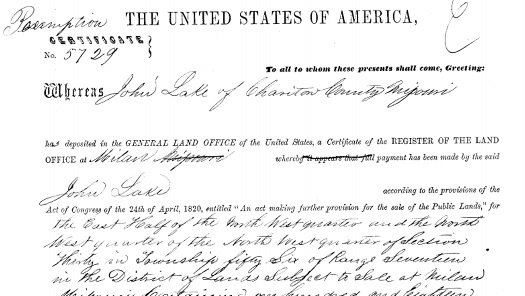 Preemption
THE UNITED STATES OF AMERICA,
CERTIFICATE
No. 5729
To all to whom these presents shall come, Greeting:
Whereas John Lake of Chariton County Missouri
has deposited in the GENERAL LAND OFFICE of the United States, a Certificate of the REGISTER OF THE LAND
OFFICE at Milan Missouri whereby it appears that full payment has been made by the said
John Lake according to the provisions of the
Act of Congress of the 24th of April, 1820, entitled "An act making further provision for the sale of the Public Lands," for
the East Half of the North West quarter and the North
West quarter of the North West quarter of Section
thirty in Township fifty Six of Range Seventeen
in the District of Lands Subject to Sale at Milan
Missouri Containing one hundred and Eighteen